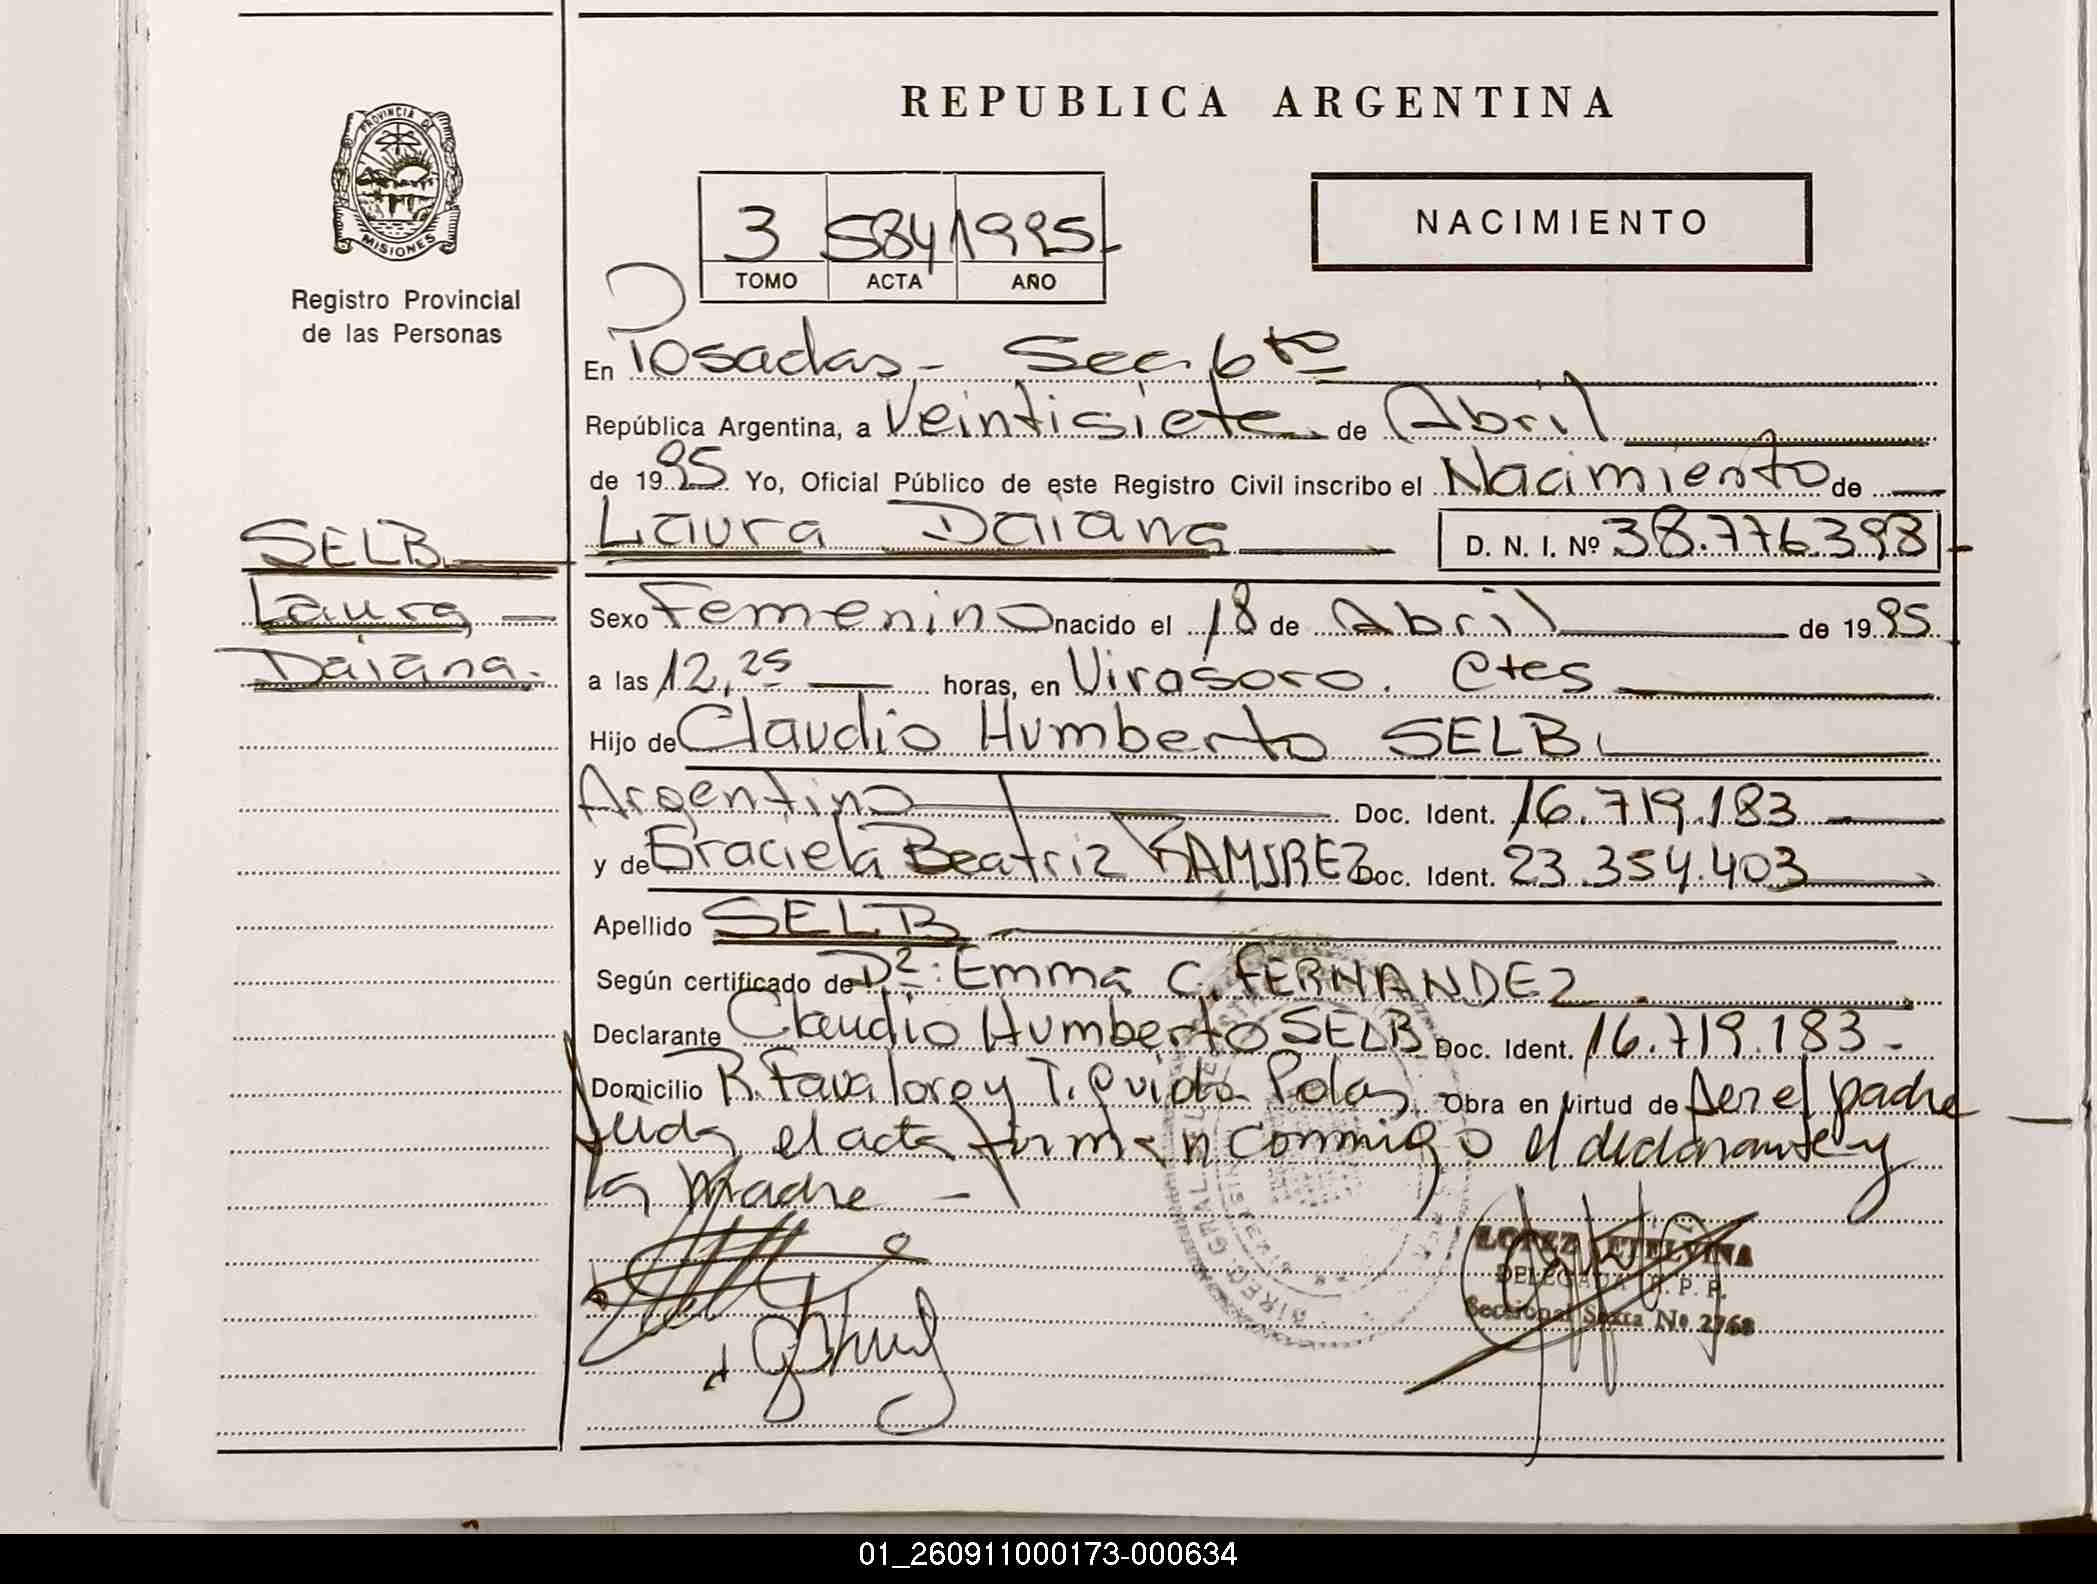 REPUBLICA ARGENTINA
PROVINCIA DE
MISIONES
Registro Provincial
de las Personas
3 584 1995
TOMO ACTA AÑO
NACIMIENTO
En Posadas - Sec. 6ta
República Argentina, a Veintisiete de Abril
de 1995 Yo, Oficial Público de este Registro Civil inscribo el Nacimiento de
SELB
Laura
Daiana.
Laura Daiana D. N. I. Nº 38.776.398
Sexo Femenino nacido el 18 de Abril de 1995
a las 12,25 horas, en Virasoro. Ctes
Hijo de Claudio Humberto SELB
Argentino Doc. Ident. 16.719.183
y de Graciela Beatriz RAMIREZ Doc. Ident. 23.354.403
Apellido SELB
Según certificado de Dª: Emma C. FERNANDEZ
Declarante Claudio Humberto SELB Doc. Ident. 16.719.183-
Domicilio R. Favaloro y T. Guido Pdas. Obra en virtud de ser el padre
leida el acta firman conmigo el declarante y
la madre -
LOPEZ ETELVINA
DELEGADA R. P. P.
Seccional Sexta Nº 2768
01_260911000173-000634